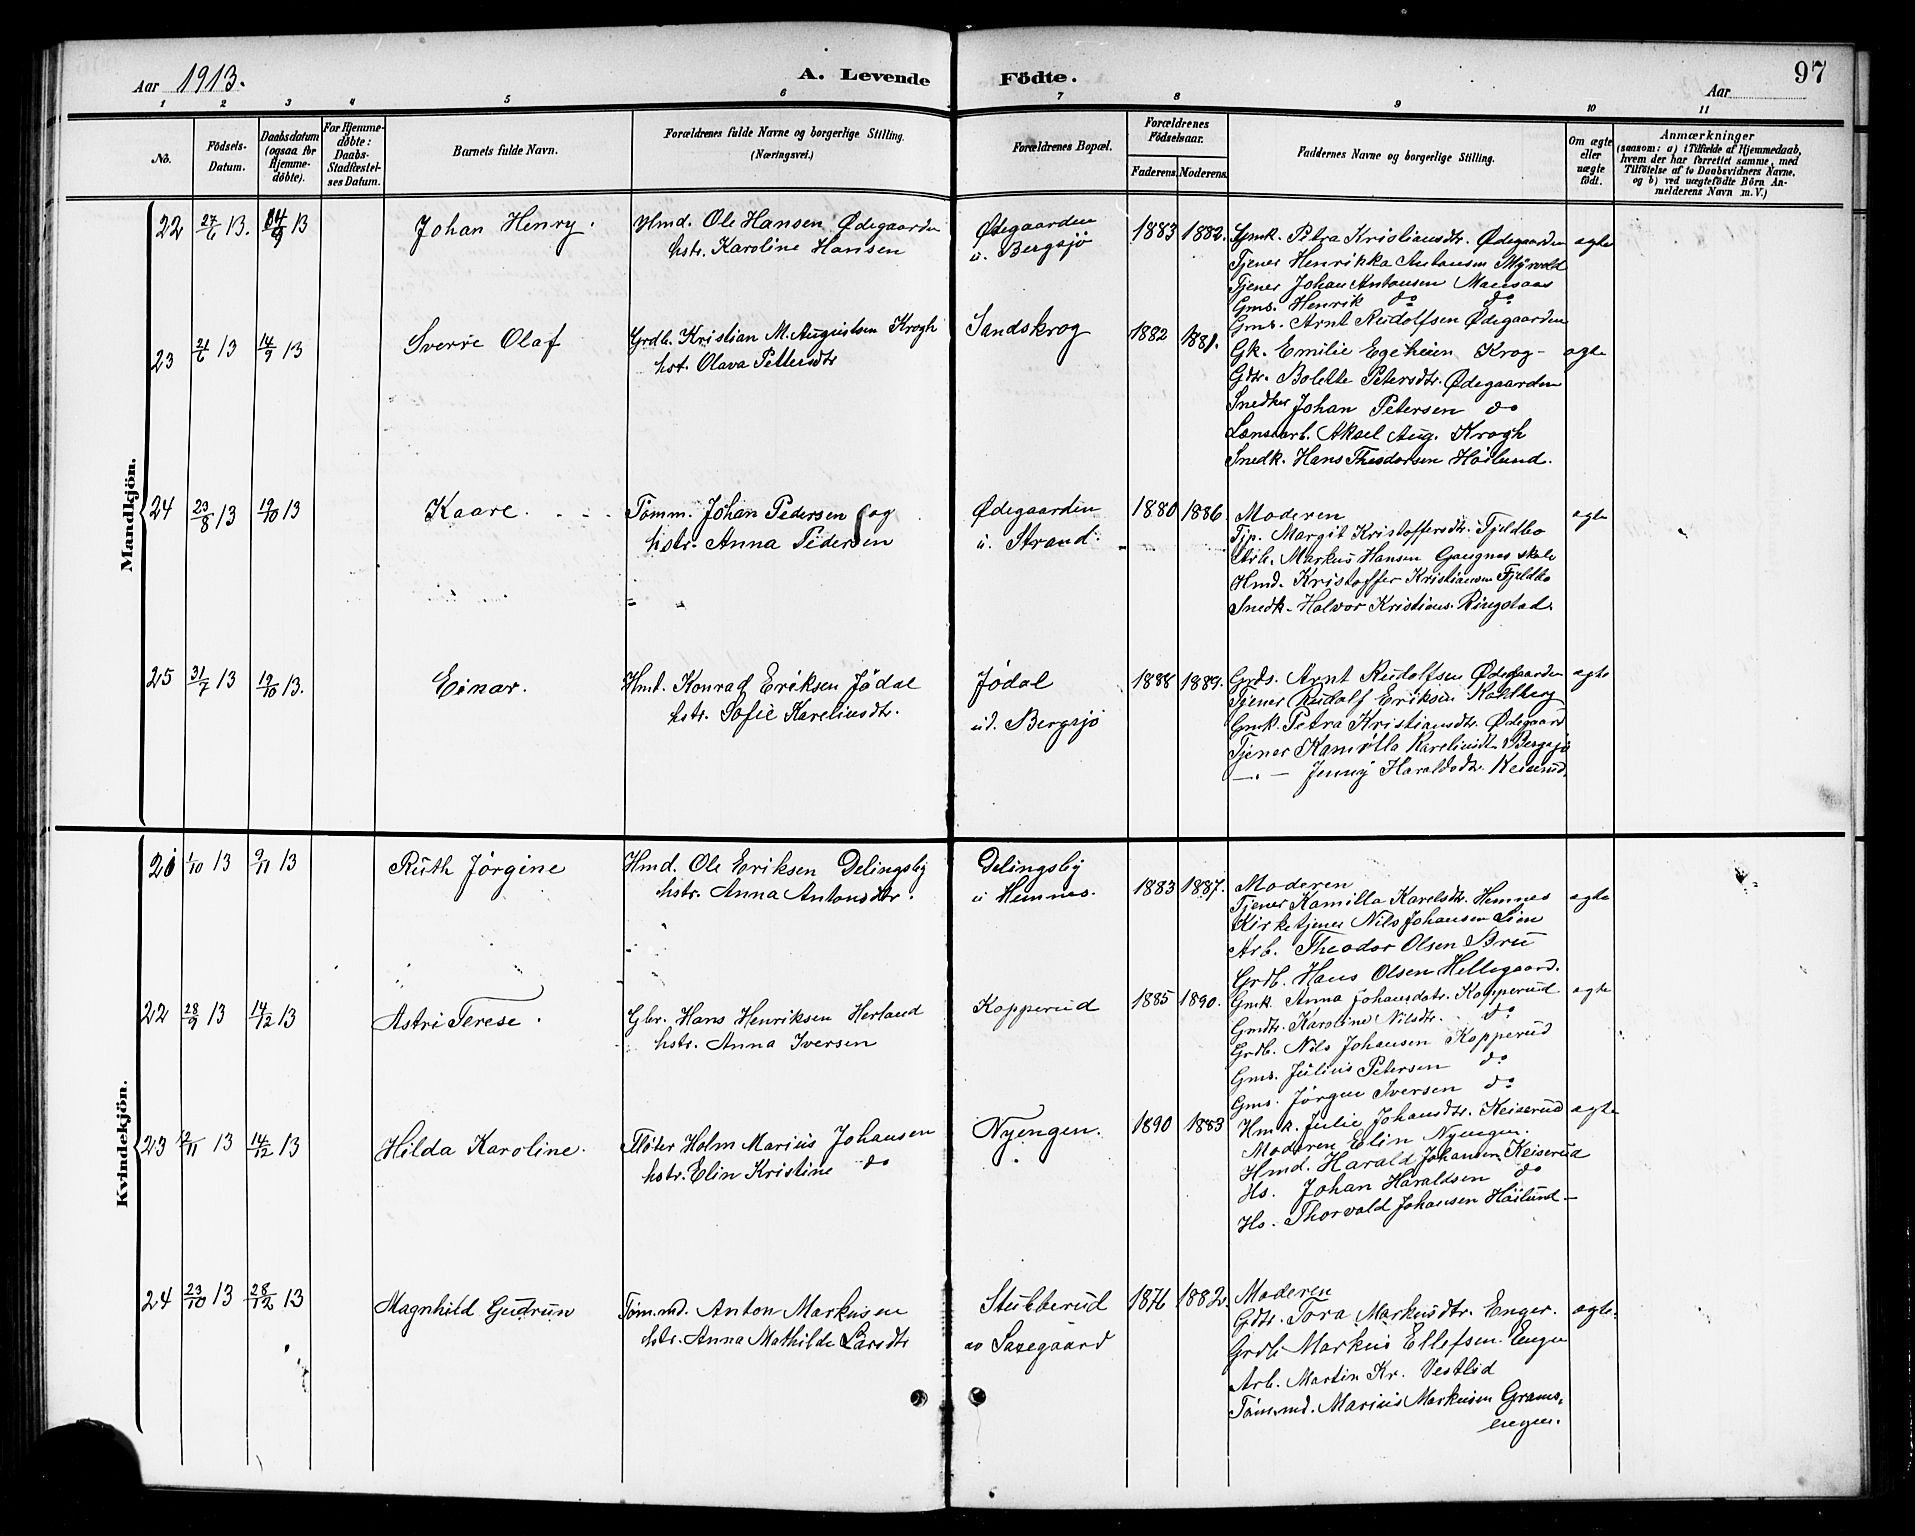 Aar 1913.
A. Levende Födte.
97
Aar
1 2 3 4 5 6 7 8 9 10 11
No.
Födsels-Datum.
Daabsdatum (ogsaa for Hjemme-döbte).
For Hjemme-döbte: Daabs-Stadfæstel-ses Datum.
Barnets fulde Navn.
Forældrenes fulde Navne og borgerlige Stilling. (Næringsvei.)
Forældrenes Bopæl.
Forældrenes Födselsaar.
Faderens. Moderens.
Faddernes Navne og borgerlige Stilling.
Om ægte eller uægte födt.
Anmærkninger
(saasom: a) i Tilfælde af Hjemmedaab,
hvem der har forrettet samme, med
Tilföielse af to Daabsvidners Navne,
og b) ved uægtefödte Börn An-
melderens Navn m. V.)
Mandkjön.
22 27/6 13. 14/9 13 Johan Henry. Hmd. Ole Hansen Ødegaarden Ødegaarden 1883 1882. Gmk. Petra Kristiansdtr. Ødegaarden ægte
hstr. Karoline Hansen u. Bergsjø Tjener Henrikka Antonsen Myrvold
Tjener Johan Antonsen Mansaas
Gms. Henrik do do
Gms. Arnt Rudolfsen Ødegaarden
23 21/6 13 14/9 13 Sverre Olaf Grdb. Kristian M. Augustsen Krogh Sandskrog 1882 1881. Gk. Emilie Egeheien Krog- ægte
hst. Olava Pettersdtr Gdtr. Bolette Petersdtr. Ødegaarden
Snedker Johan Petersen do
Lænsearb. Aksel Aug. Krogh
Snedk. Hans Theodorsen Høilund.
24 23/8 13 19/10 13 Kaare. Tømm. Johan Pedersen og Ødegaarden 1880 1886. Moderen ægte
hstr. Anna Pedersen u. Strand. Tjp. Margit Kristoffersdtr. Fjeldbo
Arb. Markus Hansen Gangnes skole
Hmd. Kristoffer Kristiansen Fjeldbo
Snedk. Halvor Kristians. Ringstad.
25 31/7 13 19/10 13. Einar. Hmd. Konrad Eriksen Jødal Jødal 1888 1889. Grds. Arnt Rudolfsen Ødegaarden ægte
hstr. Sofie Kareliusdtr. ud. Bergsjø Tjener Rudolf Eriksen Kolberg
Gmk. Petra Kristiansdtr. Ødegaard
Tjener Kamilla Kareliusdtr Bergsjø
—„— Jenny Haraldsdtr. Keiserud.
Kvindekjön.
21 1/10 13 9/11 13 Ruth Jørgine Hmd. Ole Eriksen Delingsby Delingsby 1883 1887. Moderen ægte
hstr. Anna Antonsdtr. u Hemnes. Tjener Kamilla Karelsdtr. Hemnes
Kirketjener Nils Johansen Lien
Arb. Theodor Olsen Bru
Grdb. Hans Olsen Hellegaard.
22 28/9 13 14/12 13 Astri Terese. Gbr. Hans Henriksen Herland Kopperud 1885 1890. Gmk. Anna Johansdatr. Kopperud ægte
hstr. Anna Iversen Gmdtr. Karoline Nilsdtr. do
Grdb. Nils Johansen Kopperud
Gms. Julius Petersen do
Gms. Jørgen Iversen do
23 2/11 13 14/12 13 Hilda Karoline. Fløter Holm Marius Johansen Nyengen. 1890 1883 Hmk. Julie Johansdtr. Keiserud ægte
hstr. Elin Kristine do Moderen Elin Nyengen.
Hmd. Harald Johansen Keiserud
Hs. Johan Haraldsen do
Hs. Thorvald Johansen Høilund—
24 23/10 13 28/12 13 Magnhild Gudrun Tøm.md. Anton Markusen Stubberud 1876 1882. Moderen ægte.
hstr. Anna Mathilde Larsdtr av Saxegaard Gdtr. Tora Markusdtr. Enger.
Grdb Markus Ellefsen Enger
Arb. Martin Kr. Vestlid
Tøm.md. Marius Markusen Grams-
engen.